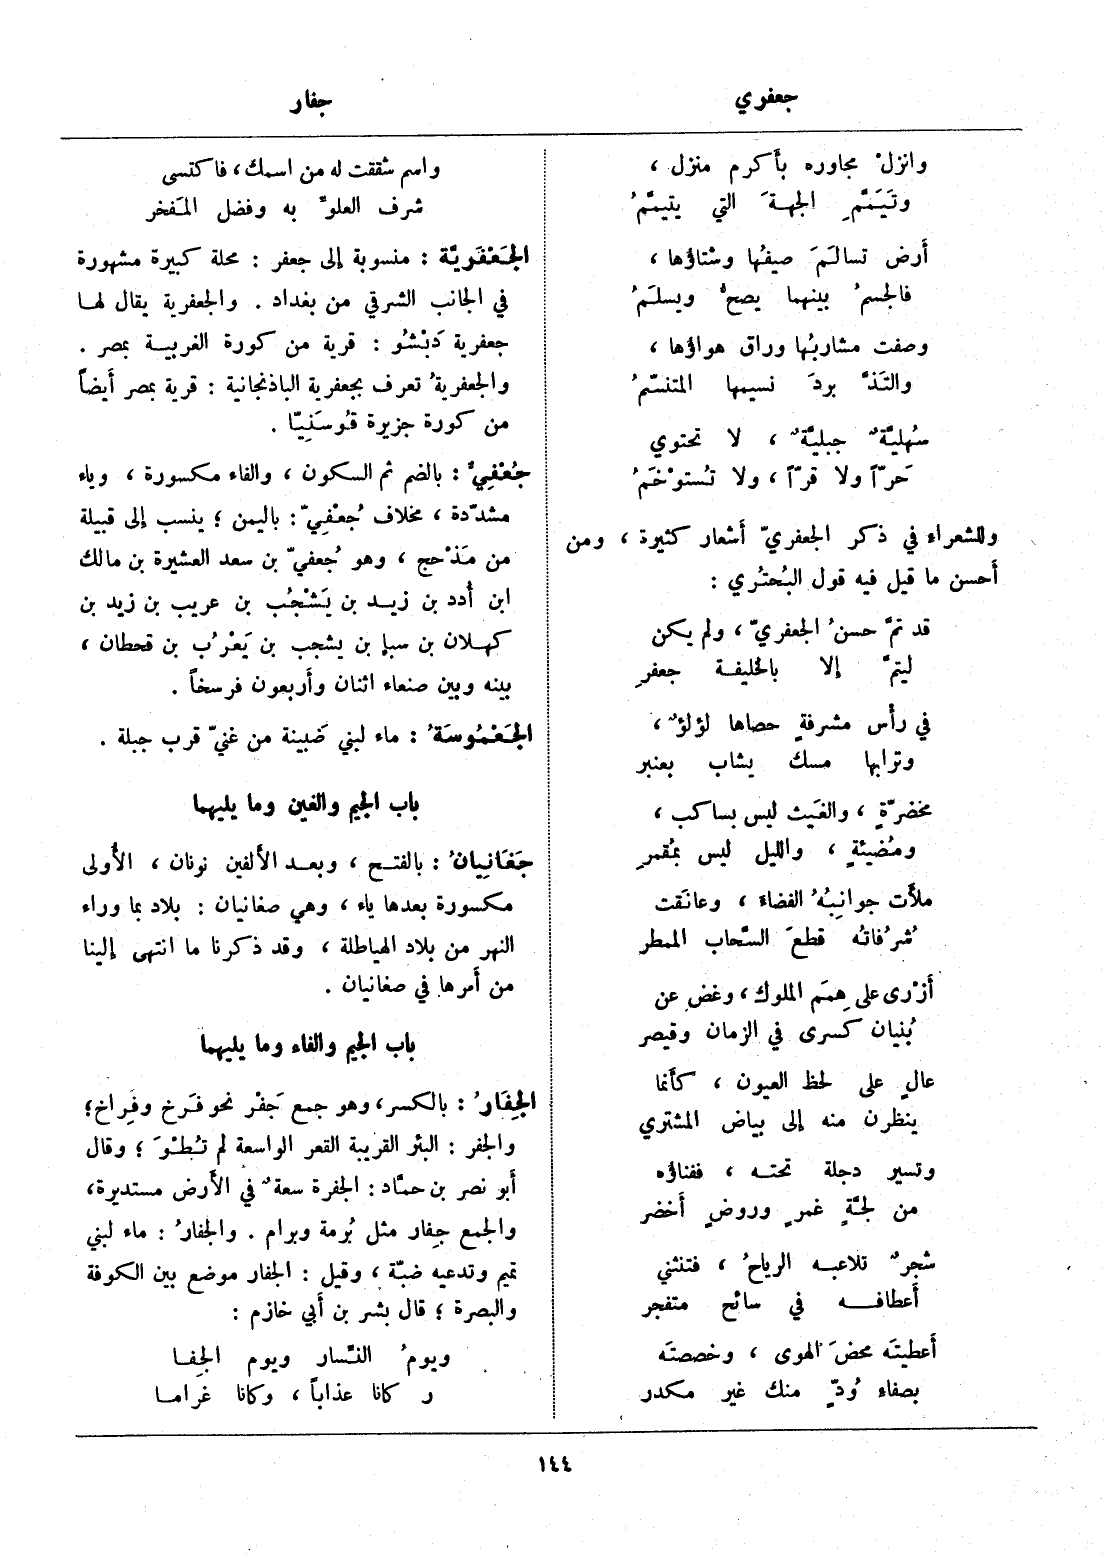 جعفري
جفار
وانزلْ مجاوره بأكرم منزل ،
وتَيَمَّمِ الجهةَ التي يتيمَّمُ
أرض تسالَمَ صيفُها وشتاؤها ،
فالجسمُ بينهما يصحُّ ويسلَمُ
وصفت مشاربُها وراق هواؤها ،
والتَذَّ بردَ نسيمها المتنسّمُ
سُهليَّةٌ جبليَّةٌ ، لا تحتوي
حَرّاً ولا قرّاً ، ولا تُستوْخَمُ
وللشعراء في ذكر الجعفريّ أشعار كثيرة ، ومن
أحسن ما قيل فيه قول البُحتُري :
قد تمَّ حسنُ الجعفريّ ، ولم يكن
ليتمَّ إلا بالخليفة جعفرِ
في رأس مشرفةٍ حصاها لؤلؤٌ ،
وترابها مسك يشاب بعنبر
مخضرّةٍ ، والغَيث ليس بساكب ،
ومُضيئةٍ ، والليل ليس بمُقمرِ
ملأت جوانِبُهُ الفضاءَ ، وعانَقت
شُرُفاتُه قطعَ السَّحاب الممطر
أزْرى على هِمَم الملوك ، وغض عن
بُنيان كسرى في الزمان وقيصر
عالٍ على لحظ العيون ، كأنما
ينظرن منه إلى بياض المشتري
وتسير دجلة تحته ، ففناؤه
من لجّةٍ غمرٍ وروضٍ أخضر
شجرٌ تلاعبه الرياحُ ، فتنثني
أعطافه في سائح متفجر
أعطيتَه محضَ الهوى ، وخصصتَه
بصفاء وُدٍّ منك غير مكدر
واسم شققت له من اسمك ، فاكتسى
شرف العلوّ به وفضل المَفخر
الجَعْفَريَّة : منسوبة إلى جعفر : محلة كبيرة مشهورة
في الجانب الشرقي من بغداد . والجعفرية يقال لها
جعفرية دَبْشُو : قرية من كورة الغربية بمصر .
والجعفريةُ تعرف بجعفرية الباذنجانية : قرية بمصر أيضاً
من كورة جزيرة قُوسَنِيّا .
جُعْفِيٌّ : بالضم ثم السكون ، والفاء مكسورة ، وياء
مشدّدة ، مخلاف جُعْفِيّ : باليمن ؛ ينسب إلى قبيلة
من مَذْحج ، وهو جُعفيّ بن سعد العشيرة بن مالك
ابن أُدد بن زيد بن يَشْجُب بن عريب بن زيد بن
كهلان بن سبإ بن يشجب بن يَعْرُب بن قحطان ،
بينه وبين صنعاء اثنان وأربعون فرسخاً .
الجَعْمُوسَةُ : ماء لبني ضَبينة من غنيّ قرب جبلة .
باب الجيم والغين وما يليهما
جَغَانِيانُ : بالفتح ، وبعد الألفين نونان ، الأولى
مكسورة بعدها ياء ، وهي صغانيان : بلاد بما وراء
النهر من بلاد الهياطلة ، وقد ذكرنا ما انتهى إلينا
من أمرها في صغانيان .
باب الجيم والفاء وما يليهما
الجِفَارُ : بالكسر ، وهو جمع جَفْر نحو فَرخ وفِراخ ؛
والجفر : البئر القريبة القعر الواسعة لم تُطْوَ ؛ وقال
أبو نصر بن حمّاد : الجفرة سعةٌ في الأرض مستديرة ،
والجمع جِفار مثل بُرمة وبرام . والجفارُ : ماء لبني
تميم وتدعيه ضبّة ، وقيل : الجفار موضع بين الكوفة
والبصرة ؛ قال بشر بن أبي خازم :
ويومُ النّسار ويوم الجِفا
ر كانا عذاباً ، وكانا غراما
١٤٤